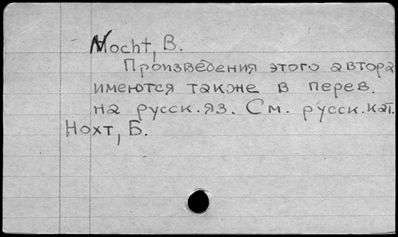 Nocht, B.
Произведения этого автора
имеются также в перев.
на русск. яз. См. русск. кат.
Нохт, Б.